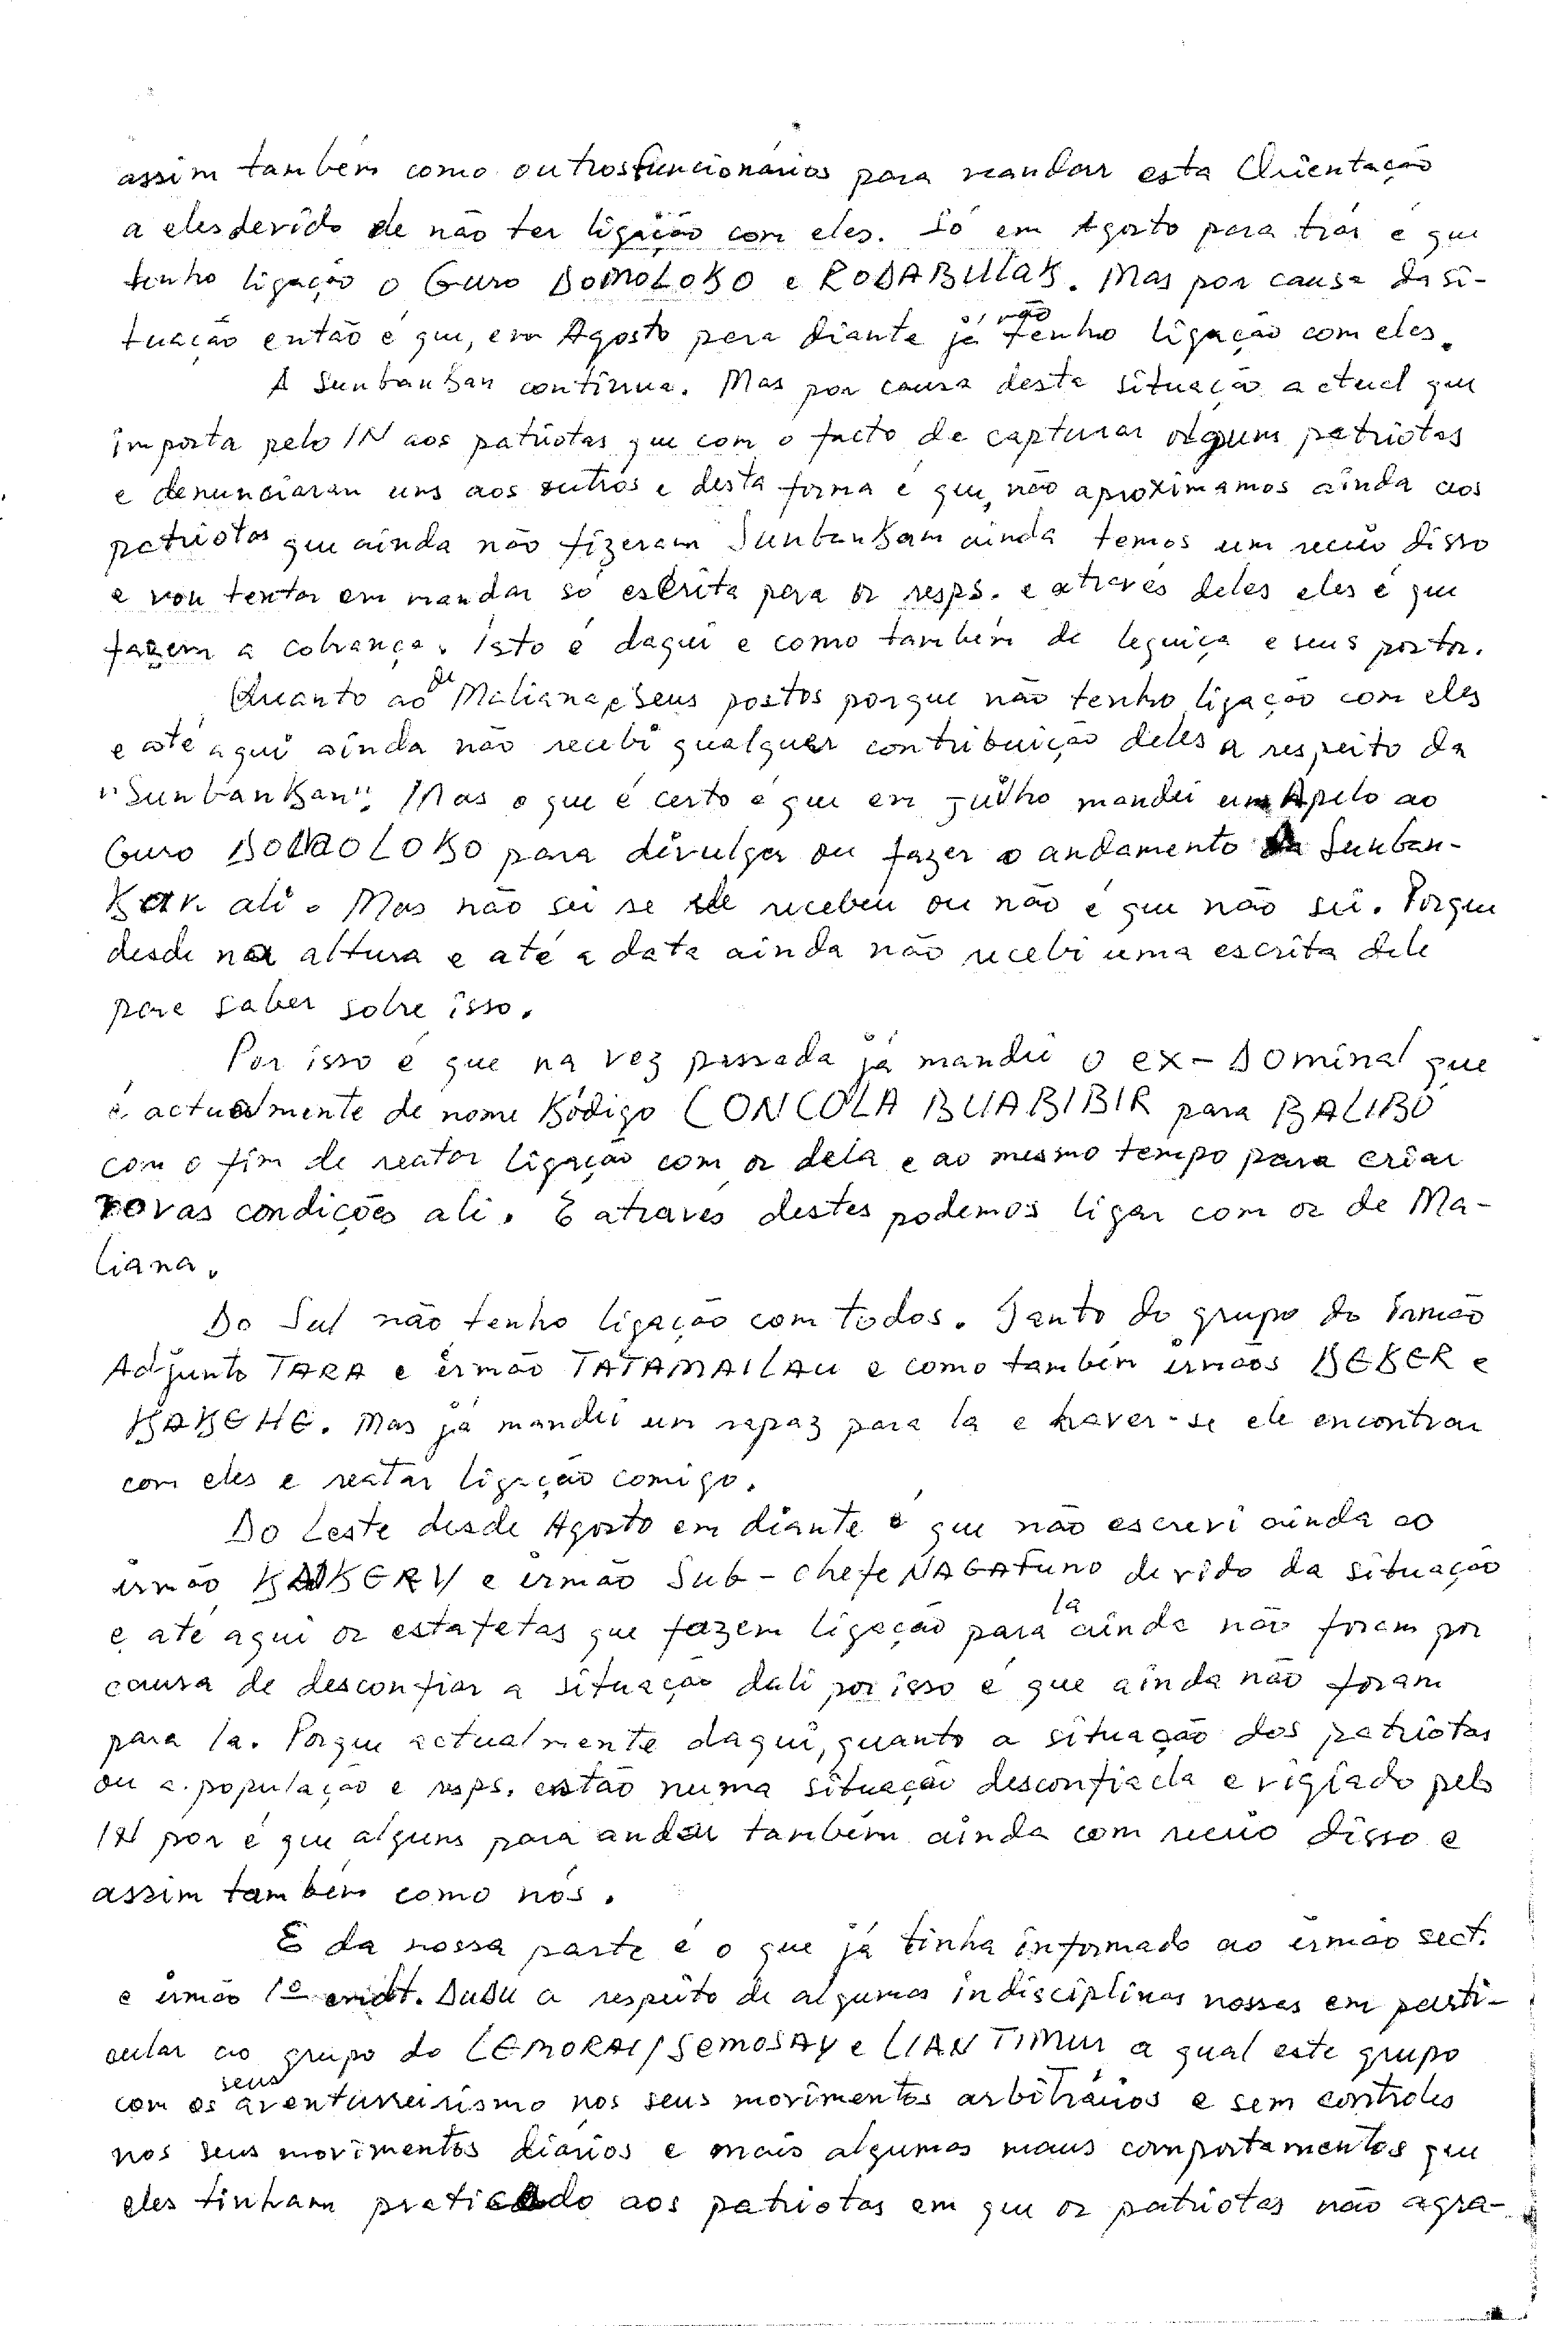 assim também como outros funcionários para mandar esta Orientação
a eles devido de não ter ligação com eles. Só em Agosto para trás é que
tenho ligação o Guro DOMOLOKO e RODABULLAK. Mas por causa da si-
tuação então é que, em Agosto para diante já não tenho ligação com eles.
A Sunbankan continua. Mas por causa desta situação actual que
importa pelo IN aos patriotas que com o facto de capturar alguns patriotas
e denunciaram uns aos outros e desta forma é que, não aproximamos ainda aos
patriotas que ainda não fizeram Sunbankam ainda temos um receio disso
e vou tentar em mandar só escrita para os resps. e através deles eles é que
fazem a cobrança. Isto é daqui e como também de leguiça e seus postos.
Quanto ao de Maliana, e seus postos porque não tenho ligação com eles
e até aqui ainda não recebi qualquer contribuição deles a respeito da
"Sunbankan". Mas o que é certo é que em Julho mandei um Apelo ao
Guro DOMOLOKO para divulgar ou fazer o andamento da Sunban-
Kan ali. Mas não sei se ele recebeu ou não é que não sei. Porque
desde na altura e até a data ainda não recebi uma escrita dele
para saber sobre isso.
Por isso é que na vez passada já mandei o ex-Dominal que
é actualmente de nome Kódigo CONCOLA BUABIBIR para BALIBÓ
com o fim de reatar ligação com os dela e ao mesmo tempo para criar
novas condições ali. E através destes podemos ligar com os de Ma-
liana.
Do Sul não tenho ligação com todos. Tanto do grupo do Irmão
Adjunto TARA e irmão TATAMAILAU e como também irmãos DEKER e
KAKEHE. Mas já mandei um rapaz para la e haver-se ele encontrar
com eles e reatar ligação comigo.
Do Leste desde Agosto em diante é que não escrevi ainda ao
irmão KAKERY e irmão Sub-Chefe NAGAFUNO devido da situação
e até aqui os estafetas que fazem ligação para la ainda não foram por
causa de desconfiar a situação dali por isso é que ainda não foram
para la. Porque actualmente daqui, quanto a situação dos patriotas
ou a população e resps. estão numa situação desconfiada e vigiado pelo
IN por é que alguns para andar também ainda com receio disso e
assim também como nós.
E da nossa parte é o que já tinha informado ao irmão sect.
e irmão 1º DUDU a respeito de algumas indisciplinas nossas em parti-
cular ao grupo do LEMORAI/SEMOSAY e LIAN TIMUR a qual este grupo
com os seus aventureirismo nos seus movimentos arbitrários e sem controles
nos seus movimentos diários e mais algumas maus comportamentos que
eles tinham praticado aos patriotas em que os patriotas não agra-